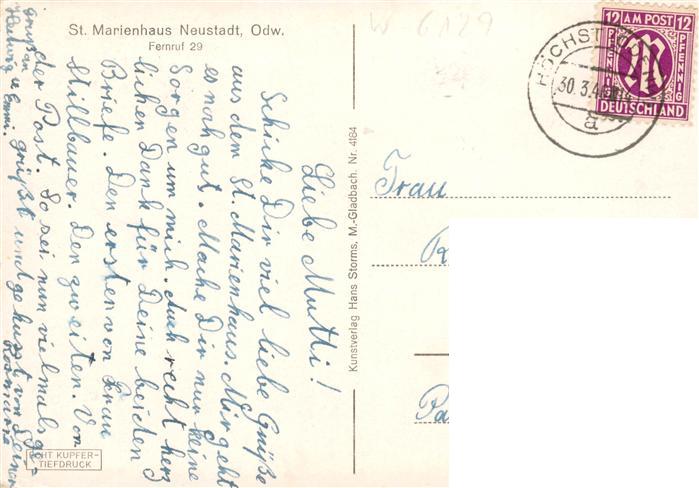 St. Marienhaus Neustadt, Odw.
Fernruf 29
W 6129
Liebe Mutti!
Schicke Dir viel liebe Grüße
aus dem St. Marienhaus. Mir geht
es noch gut. Mache Dir nur keine
Sorgen um mich. Auch recht herz
lichen Dank für Deine beiden
Briefe. Den ersten von Frau
Stillbauer. Den zweiten. Von
der Post. So sei nun vielmals ge-
grüßt und geküsst von Deiner
Rosmarie
Kunstverlag Hans Storms, M.-Gladbach. Nr. 4184
ECHT KUPFER-
TIEFDRUCK
HÖCHST
30.3.4
a
12 AM POST 12
PFENNIG
M
PFENNIG
DEUTSCHLAND
Frau